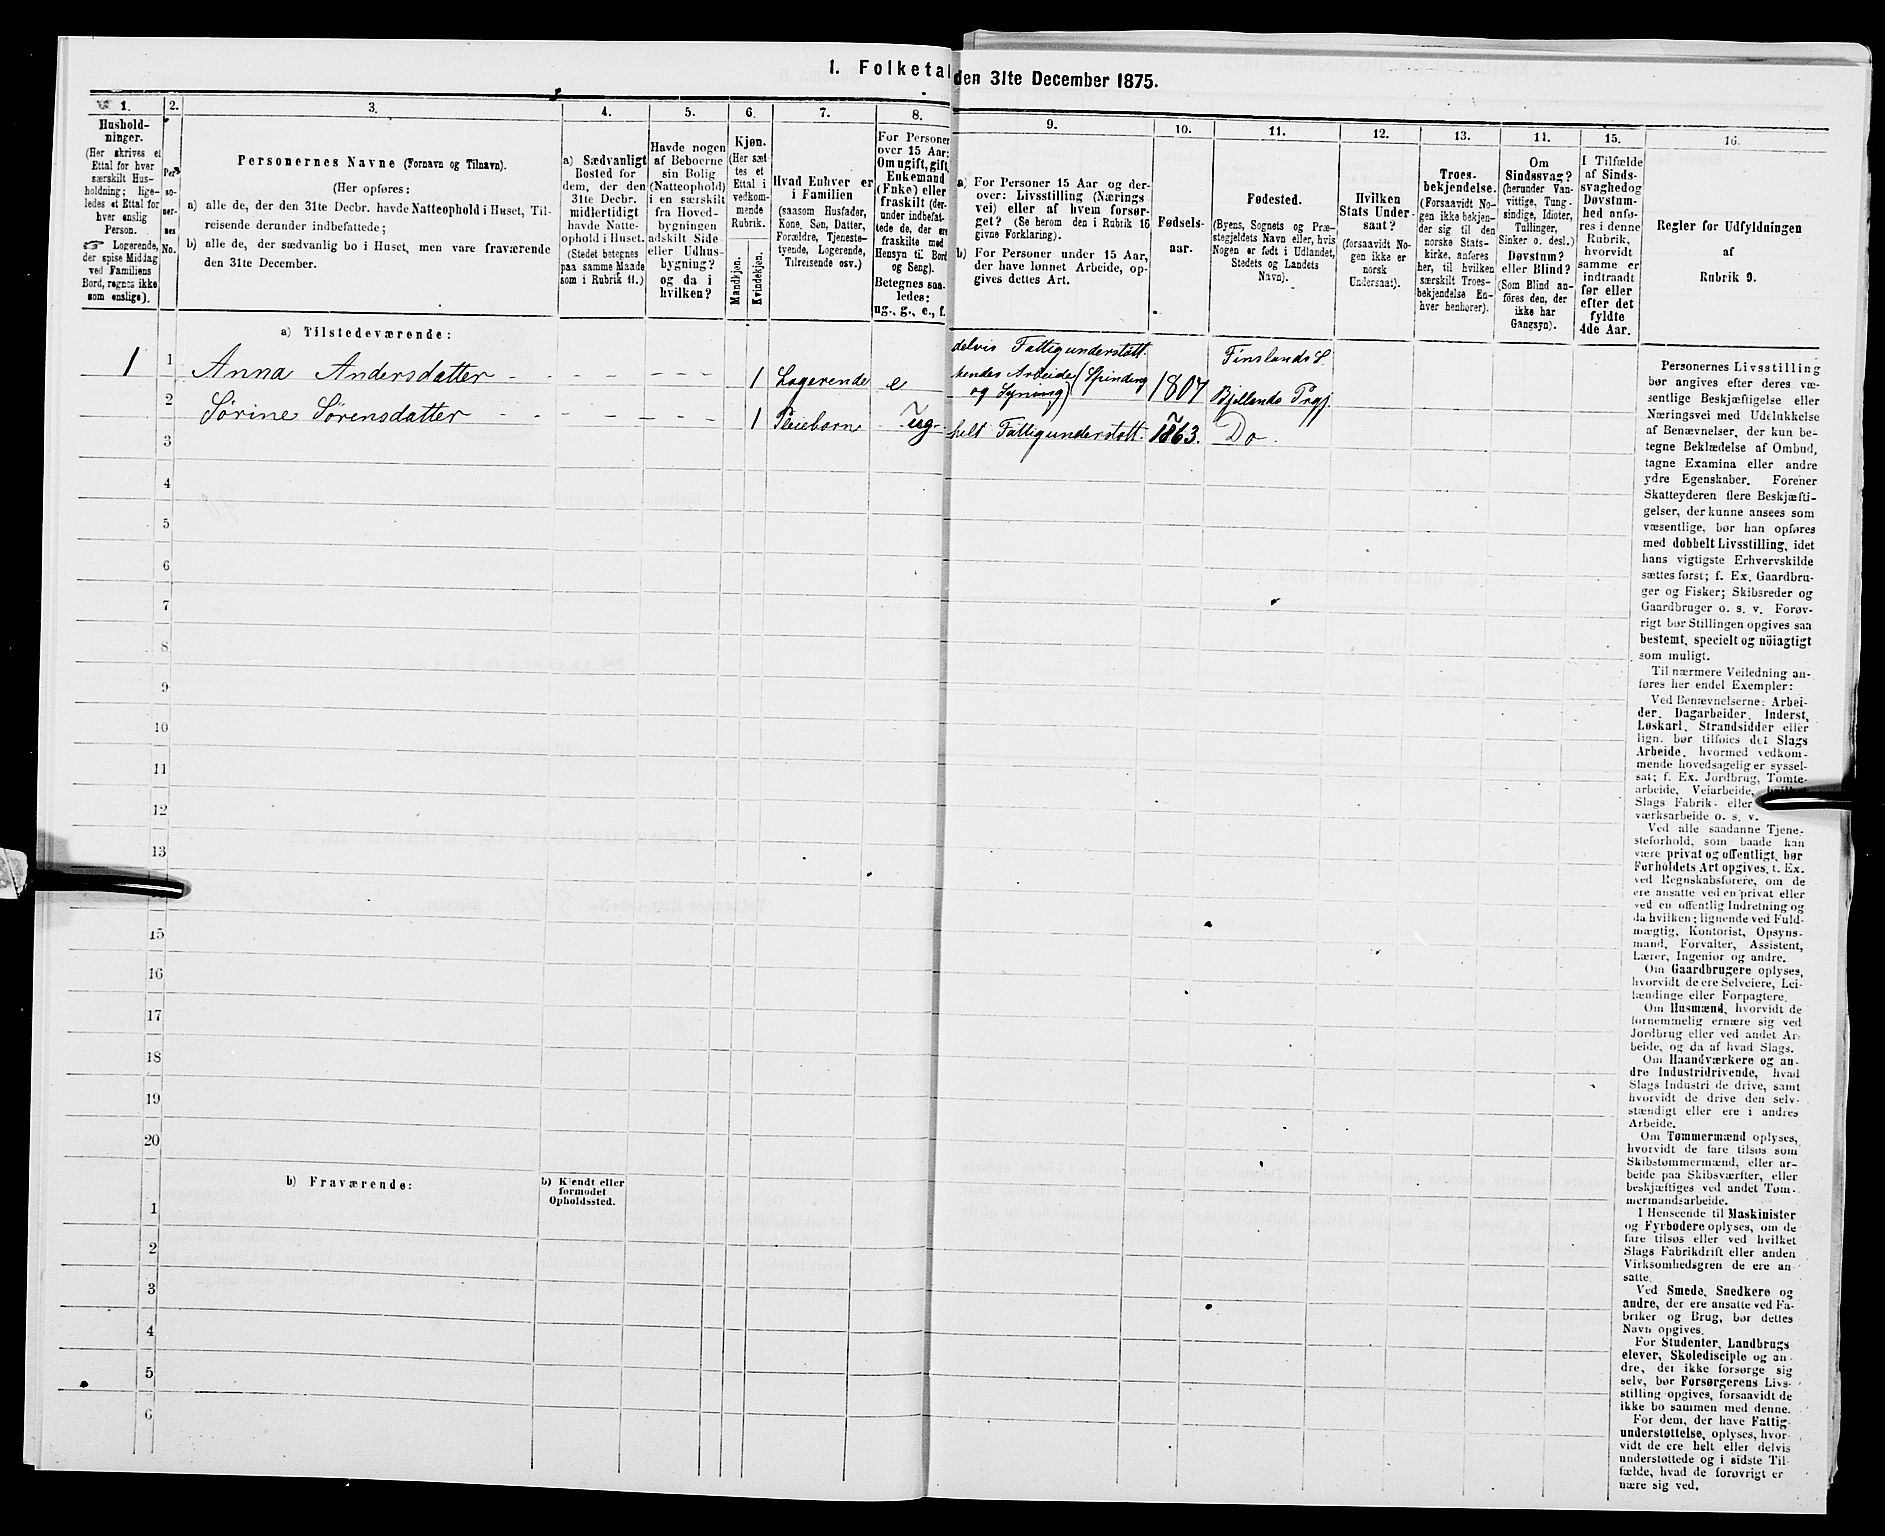 1. Folketal den 31te December 1875.
1.
Hushold-
ninger.
(Her skrives et
Ettal for hver
særskilt Hus-
holdning; lige-
ledes et Ettal for
hver enslig
Person.
☞ Logerende,
der spise Middag
ved Familiens
Bord, regnes ikke
som enslige).
2.
Per-
so-
ner-
nes
No.
3.
Personernes Navne (Fornavn og Tilnavn).
(Her opføres:
a) alle de, der den 31te Decbr. havde Natteophold i Huset, Til-
reisende derunder indbefattede;
b) alle de, der sædvanlig bo i Huset, men vare fraværende
den 31te December.
4.
a) Sædvanligt
Bosted for
dem, der den
31te Decbr.
midlertidigt
havde Natte-
ophold i Huset.
(Stedet betegnes
paa samme Maade
som i Rubrik 11.)
5.
Havde nogen
af Beboerne
sin Bolig
(Natteophold)
i en særskilt
fra Hoved-
bygningen
adskilt Side-
eller Udhus-
bygning?
og da i
hvilken?
6.
Kjøn.
(Her sæt-
tes et
Ettal i
vedkom-
mende
Rubrik.
Mandkjøn.
Kvindekjøn.
7.
Hvad Enhver er
i Familien
(saasom Husfader,
Kone, Søn, Datter,
Forældre, Tjeneste-
tyende, Logerende,
Tilreisende osv.)
8.
For Personer
over 15 Aar:
Om ugift, gift,
Enkemand
(Enke) eller
fraskilt (der-
under indbefat-
tede de, der ere
fraskilte med
Hensyn til Bord
og Seng).
Betegnes saa-
ledes:
ug., g., e., f.
9.
a) For Personer 15 Aar og der-
over: Livsstilling (Nærings-
vei) eller af hvem forsør-
get? (Se herom den i Rubrik 16
givne Forklaring).
b) For Personer under 15 Aar,
der have lønnet Arbeide, op-
gives dettes Art.
10.
Fødsels-
aar.
11.
Fødested.
(Byens, Sognets og Præ-
stegjeldets Navn eller, hvis
Nogen er født i Udlandet,
Stedets og Landets
Navn).
12.
Hvilken
Stats Under-
saat?
(forsaavidt No-
gen ikke er
norsk
Undersaat).
13.
Troes-
bekjendelse.
(Forsaavidt No-
gen ikke bekjen-
der sig til den
norske Stats-
kirke, anføres
her, til hvilken
særskilt Troes-
bekjendelse En-
hver henhører).
14.
Om
Sindssvag?
(herunder Van-
vittige, Tung-
sindige, Idioter,
Tullinger,
Sinker o. desl.)
Døvstum?
eller Blind?
(Som Blind an-
føres den, der
ikke har
Gangsyn).
15.
I Tilfælde
af Sinds-
svaghed og
Døvstum-
hed anfø-
res i denne
Rubrik,
hvorvidt
samme er
indtraadt
før eller
efter det
fyldte
4de Aar.
16.
Regler for Udfyldningen
af
Rubrik 9.
a) Tilstedeværende:
1 1 Anna Andersdatter - - - - - - - 1 Logerende e delvis Fattigunderstøtt.
hendes Arbeide (Spinding
og Syning) 1807 Finslands S
Bjellands Prgj.
2 Sørine Sørensdatter - - - - - - - 1 Pleiebarn ug helt Fattigunderstøtt. 1863. Do
3
4
5
6
7
8
9
10
11
12
13
15
16
17
18
19
20
b) Fraværende:
b) Kjendt eller
formodet
Opholdssted.
1
2
3
4
5
6
Personernes Livsstilling
bør angives efter deres væ-
sentlige Beskjæftigelse eller
Næringsvei med Udelukkelse
af Benævnelser, der kun be-
tegne Beklædelse af Ombud,
tagne Examina eller andre
ydre Egenskaber. Forener
Skatteyderen flere Beskjæfti-
gelser, der kunne ansees som
væsentlige, bør han opføres
med dobbelt Livsstilling, idet
hans vigtigste Erhvervskilde
sættes først; f. Ex. Gaardbru-
ger og Fisker; Skibsreder og
Gaardbruger o. s. v. Forøv-
rigt bør Stillingen opgives saa
bestemt, specielt og nöiagtigt
som muligt.
Til nærmere Veiledning an-
føres her endel Exempler:
Ved Benævnelserne: Arbei-
der, Dagarbeider, Inderst,
Løskarl, Strandsidder eller
lign. bør tilføies det Slags
Arbeide, hvormed vedkom-
mende hovedsagelig er syssel-
sat; f. Ex. Jordbrug, Tomte-
arbeide, Veiarbeide, hvilket
Slags Fabrik- eller
værksarbeide o. s. v.
Ved alle saadanne Tjene-
steforhold, som baade kan
være privat og offentligt, bør
Forholdets Art opgives, t. Ex.
ved Regnskabsførere, om de
ere ansatte ved en privat eller
ved en offentlig Indretning og
da hvilken; lignende ved Fuld-
mægtig, Kontorist, Opsyns-
mand, Forvalter, Assistent,
Lærer, Ingeniør og andre.
Om Gaardbrugere oplyses,
hvorvidt de ere Selveiere, Lei-
lændinge eller Forpagtere.
Om Husmænd, hvorvidt de
fornemmelig ernære sig ved
Jordbrug eller ved andet Ar-
beide, og da af hvad Slags.
Om Haandværkere og an-
dre Industridrivende, hvad
Slags Industri de drive, samt
hvorvidt de drive den selv-
stændigt eller ere i andres
Arbeide.
Om Tømmermænd oplyses,
hvorvidt de fare tilsøs som
Skibstømmermænd, eller ar-
beide paa Skibsværfter, eller
beskjæftiges ved andet Tøm-
mermandsarbeide.
I Henseende til Maskinister
og Fyrbødere oplyses, om de
fare tilsøs eller ved hvilket
Slags Fabrikdrift eller anden
Virksomhedsgren de ere an-
satte.
Ved Smede, Snedkere og
andre, der ere ansatte ved Fa-
briker og Brug, bør dettes
Navn opgives.
For Studenter, Landbrugs-
elever, Skoledisciple og an-
dre, der ikke forsørge sig
selv, bør Forsørgerens Livs-
stilling opgives, forsaavidt de
ikke bo sammen med denne.
For dem, der have Fattig-
understøttelse, oplyses, hvor-
vidt de ere helt eller delvis
understøttede og i sidste Til-
fælde, hvad de forøvrigt er-
nære sig ved.